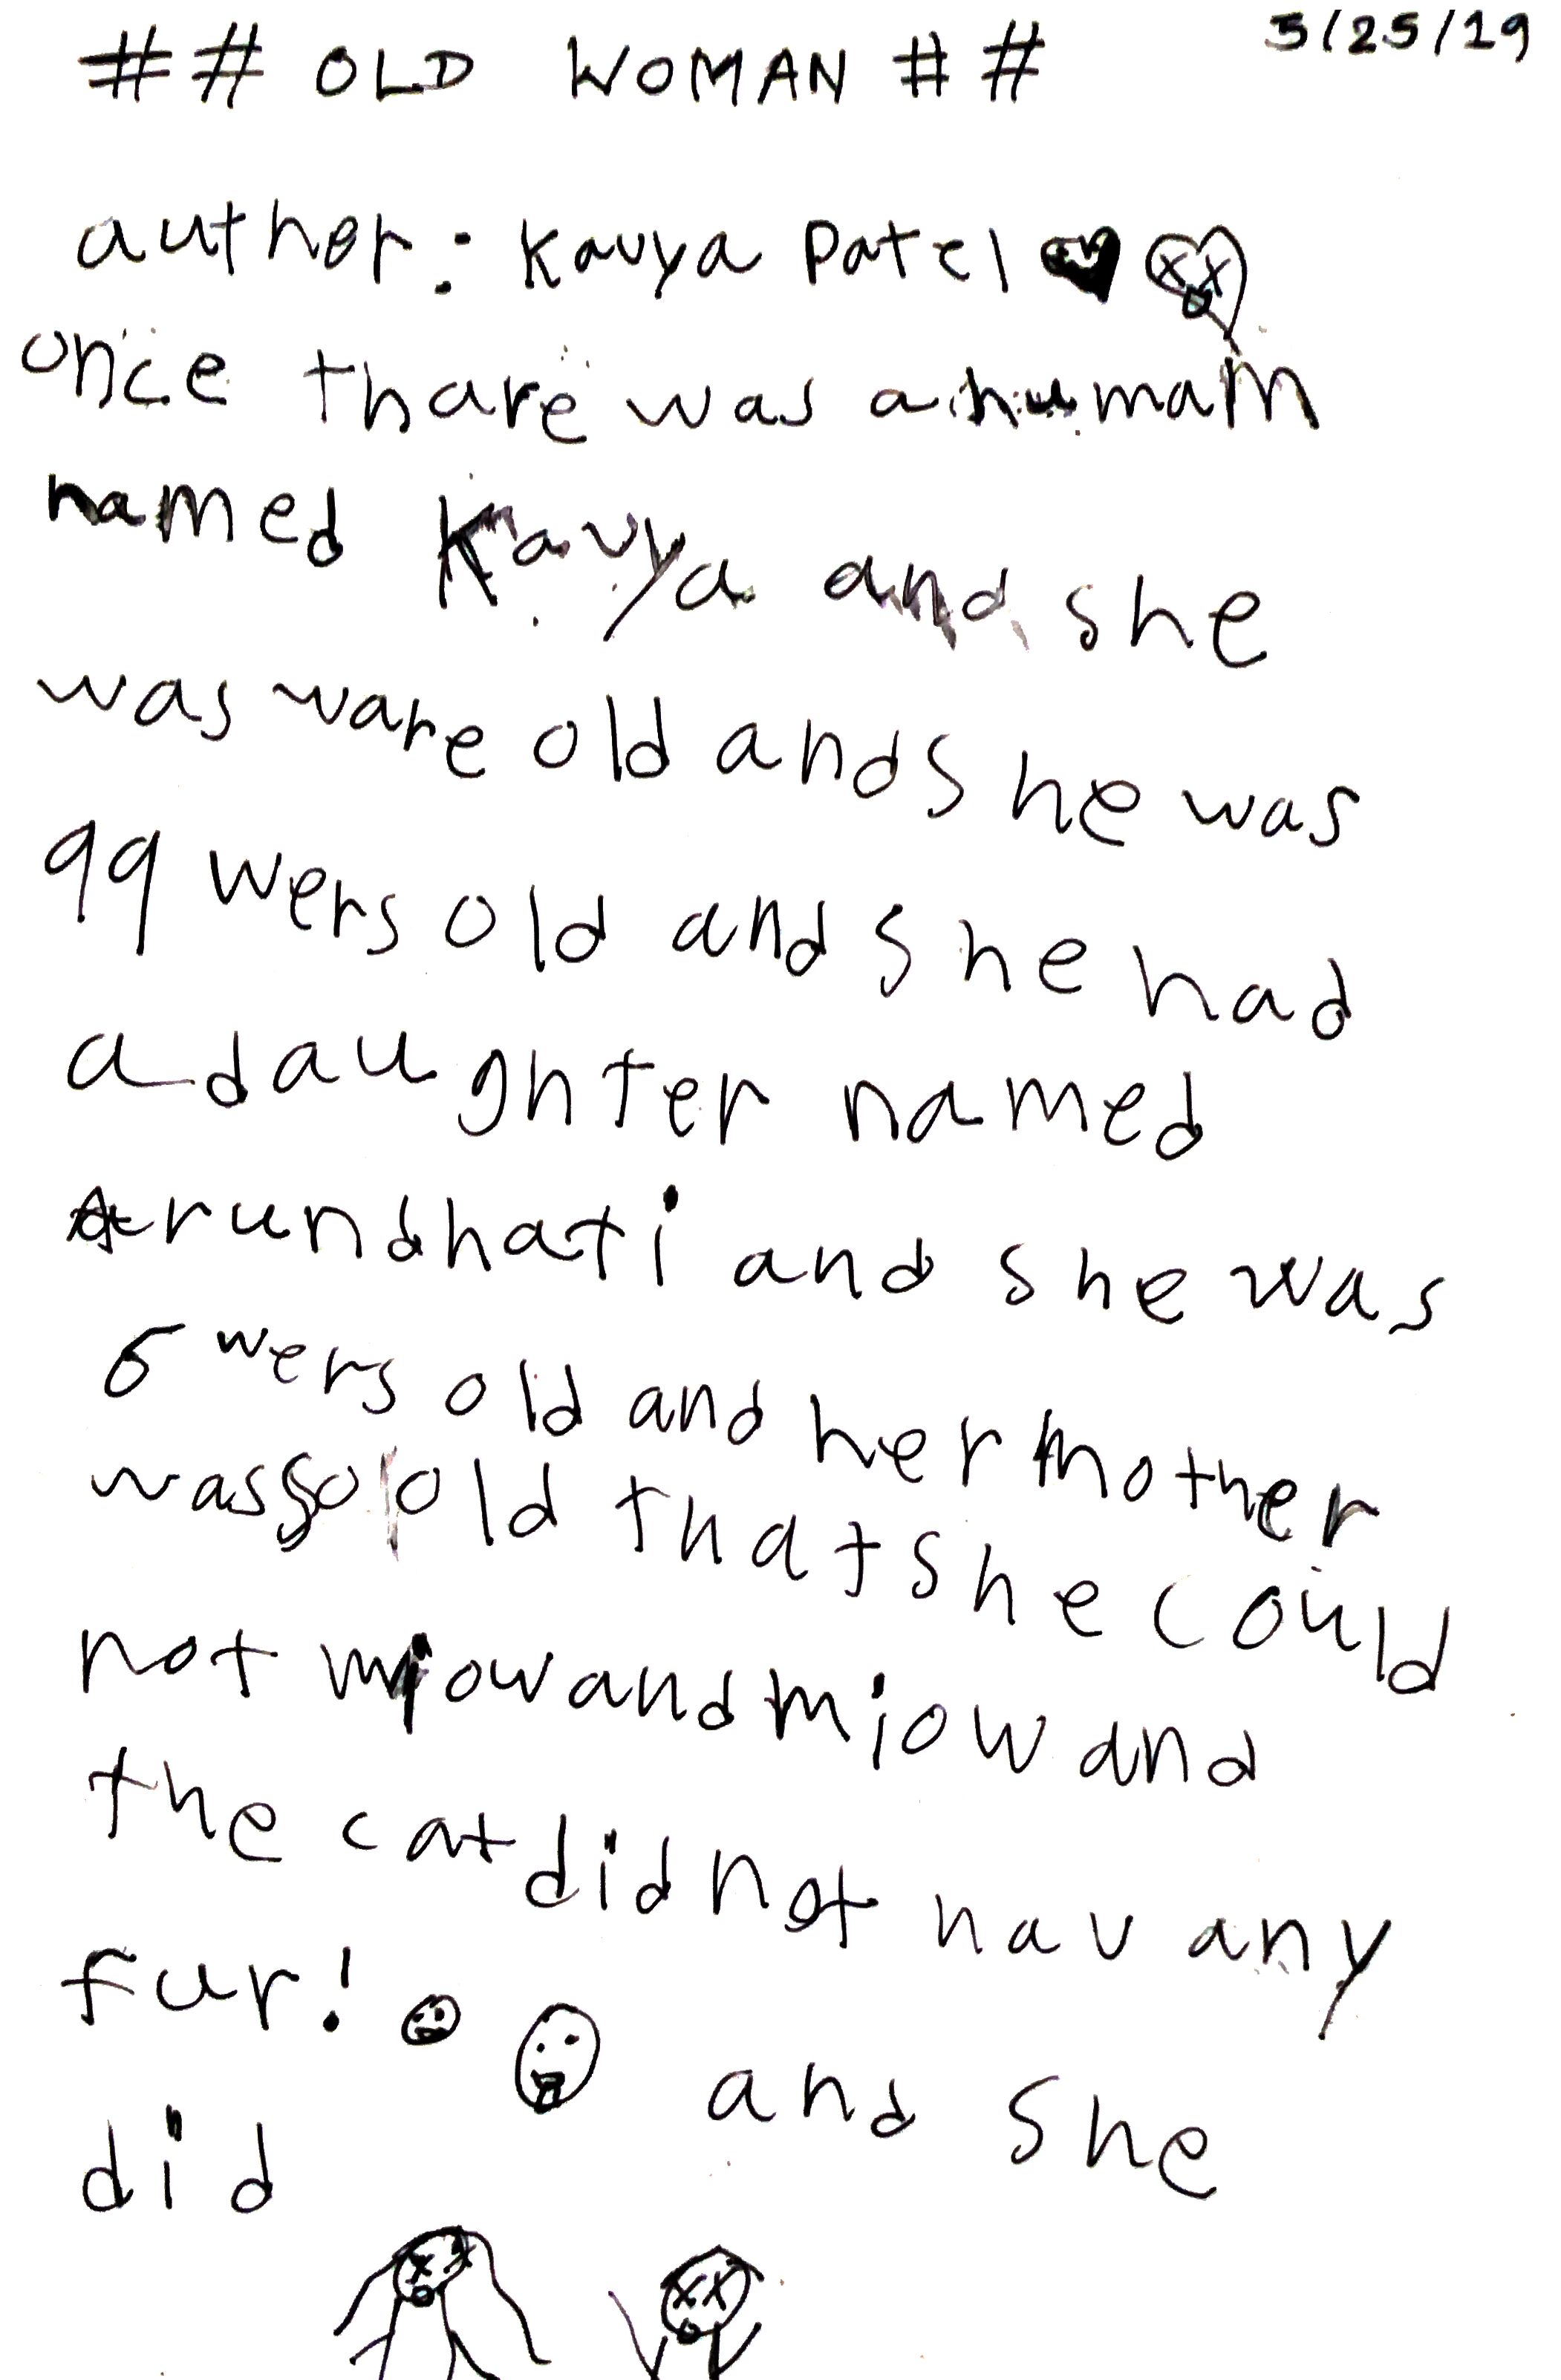 ## OLD WOMAN ## 3/25/19
auther: Kavya Patel
once thare was a human
named Kavya and she
was vare old and she was
99 wers old and she had
a daughter named
Arundhati and she was
6 wers old and her mother
was so old that she could
not miow and miow and
the cat did not hav any
fur! and she
did